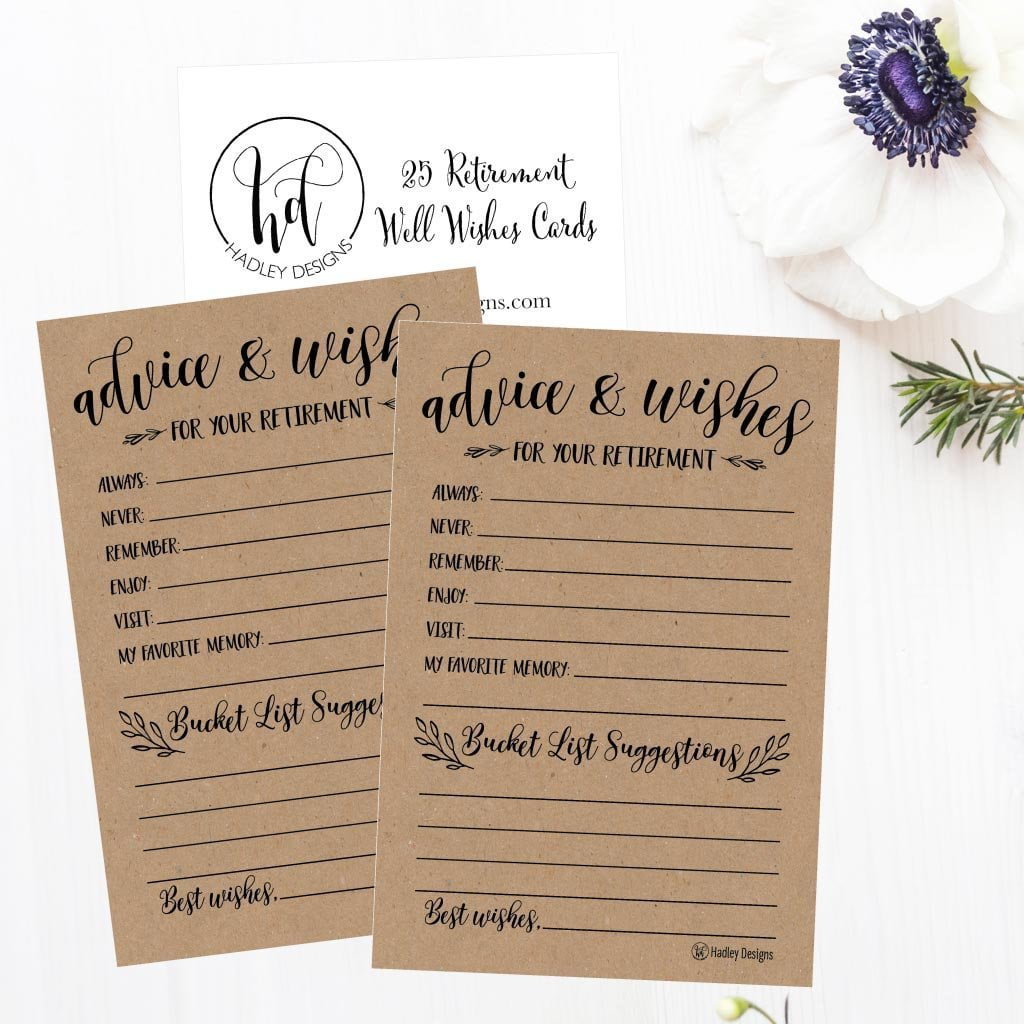 hd
HADLEY DESIGNS
25 Retirement
Well Wishes Cards
igns.com
advice & wish
FOR YOUR RETIREMENT
ALWAYS:
NEVER:
REMEMBER:
ENJOY:
VISIT:
MY FAVORITE MEMORY:
Bucket List Sugges
Best wishes,
advice & wishes
FOR YOUR RETIREMENT
ALWAYS:
NEVER:
REMEMBER:
ENJOY:
VISIT:
MY FAVORITE MEMORY:
Bucket List Suggestions
Best wishes,
hd Hadley Designs